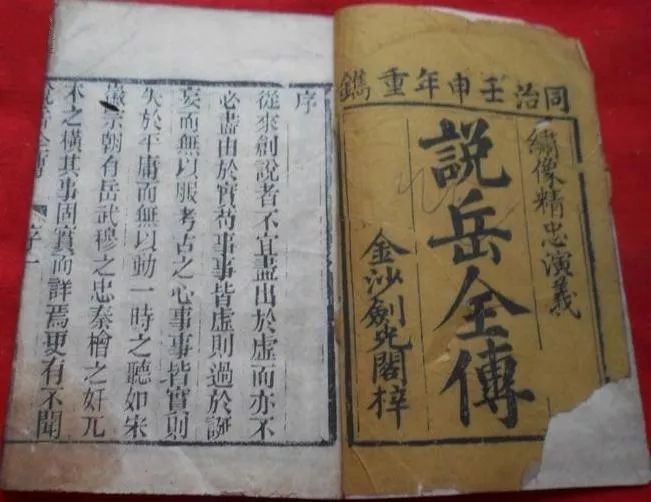 同治壬申年重鐫
繡像精忠演義
說岳全傳
金沙劍閣梓
序
從來創說者不宜盡出於虛而亦不
必盡由於實苟事事皆虛則過於誕
妄而無以服考古之心事事皆實則
失於平庸而無以動一時之聽如宋
徽宗朝有岳武穆之忠秦檜之奸兀
朮之橫其事固實而詳焉更有不聞
說岳全傳 序 一